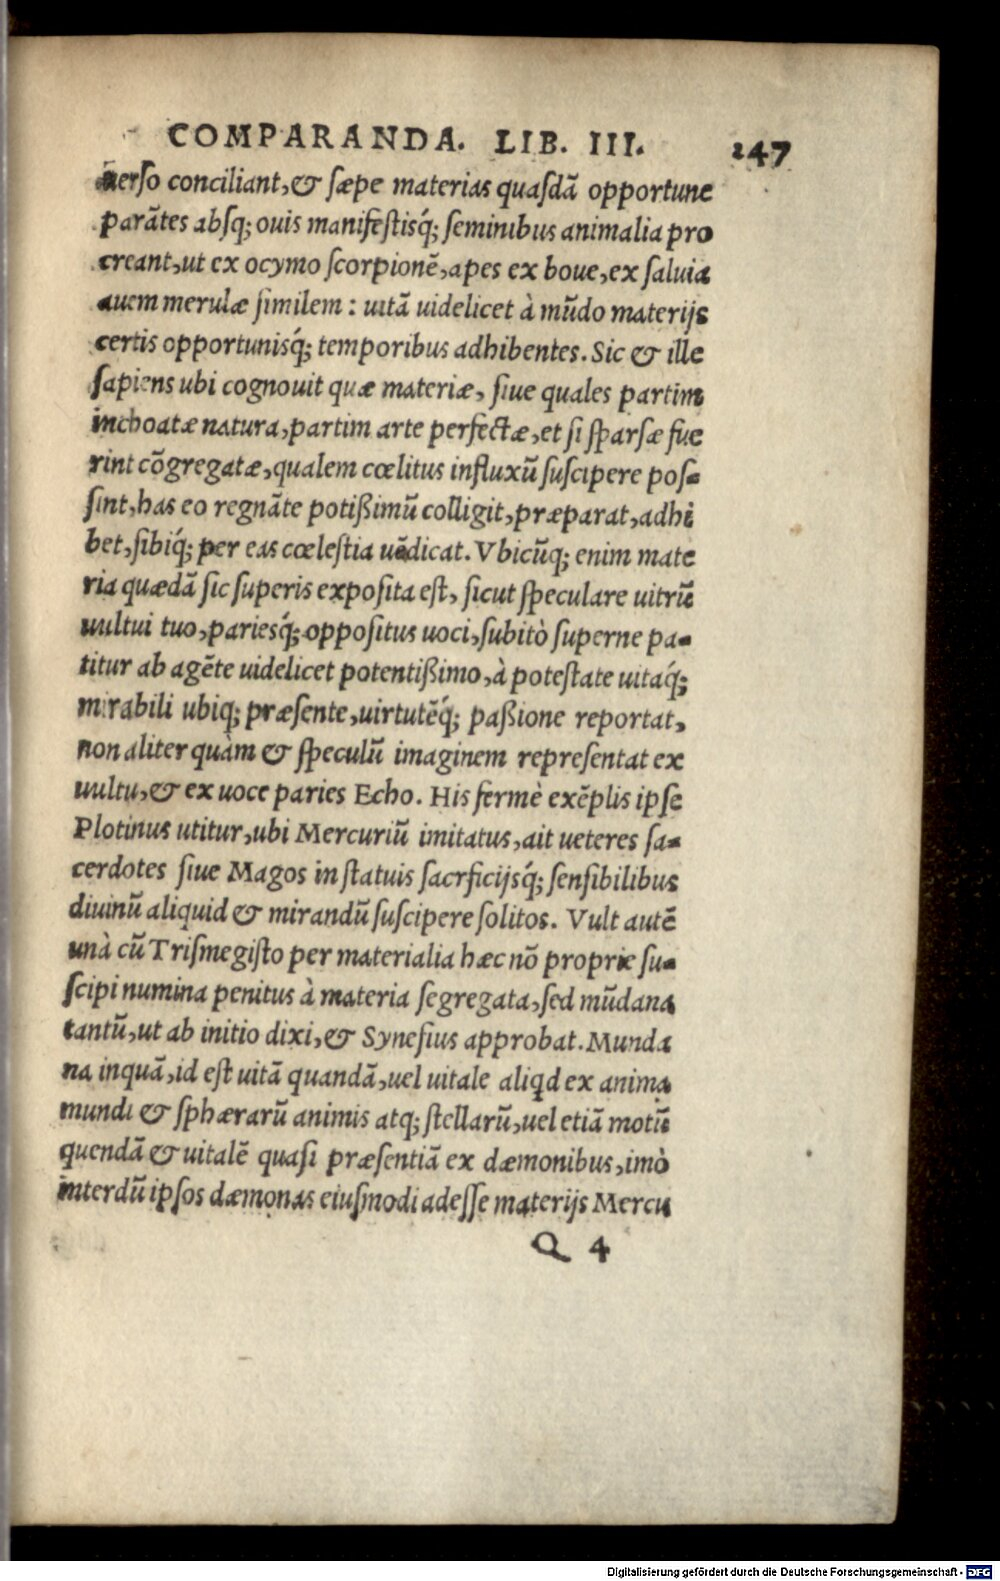 COMPARANDA. LIB. III. 247
uerso conciliant,& sæpe materias quasdã opportune
parãtes absq; ouis manifestisq́; seminibus animalia pro
creant,ut ex ocymo scorpionẽ,apes ex boue,ex saluia
auem merulæ similem : uitã uidelicet à mũdo materijs
certis opportunisq́; temporibus adhibentes. Sic & ille
sapiens ubi cognouit quæ materiæ, siue quales partim
inchoatæ natura,partim arte perfectæ,et si sparsæ fue
rint cõgregatæ,qualem cœlitus influxũ suscipere pos-
sint,has eo regnãte potißimũ colligit,præparat,adhi
bet,sibiq́; per eas cœlestia uẽdicat. Vbicũq; enim mate
ria quædã sic superis exposita est, sicut speculare uitrũ
uultui tuo,pariesq́; oppositus uoci,subitò superne pa-
titur ab agẽte uidelicet potentißimo,à potestate uitaq́;
mirabili ubiq; præsente,uirtutẽq́; paßione reportat,
non aliter quàm & speculũ imaginem representat ex
uultu,& ex uoce paries Echo. His fermè exẽplis ipse
Plotinus utitur,ubi Mercuriũ imitatus,ait ueteres sa-
cerdotes siue Magos in statuis sacrficijsq́; sensibilibus
diuinũ aliquid & mirandũ suscipere solitos. Vult autẽ
unà cũ Trismegisto per materialia hæc nõ proprie su-
scipi numina penitus à materia segregata,sed mũdana
tantũ,ut ab initio dixi,& Synesius approbat.Munda
na inquã,id est uitã quandã,uel uitale aliqd ex anima
mundi & sphærarũ animis atq; stellarũ,uel etiã motũ
quendã & uitalẽ quasi præsentiã ex dæmonibus,imò
interdũ ipsos dæmonas eiusmodi adesse materijs Mercu
Q 4
Digitalisierung gefördert durch die Deutsche Forschungsgemeinschaft - DFG